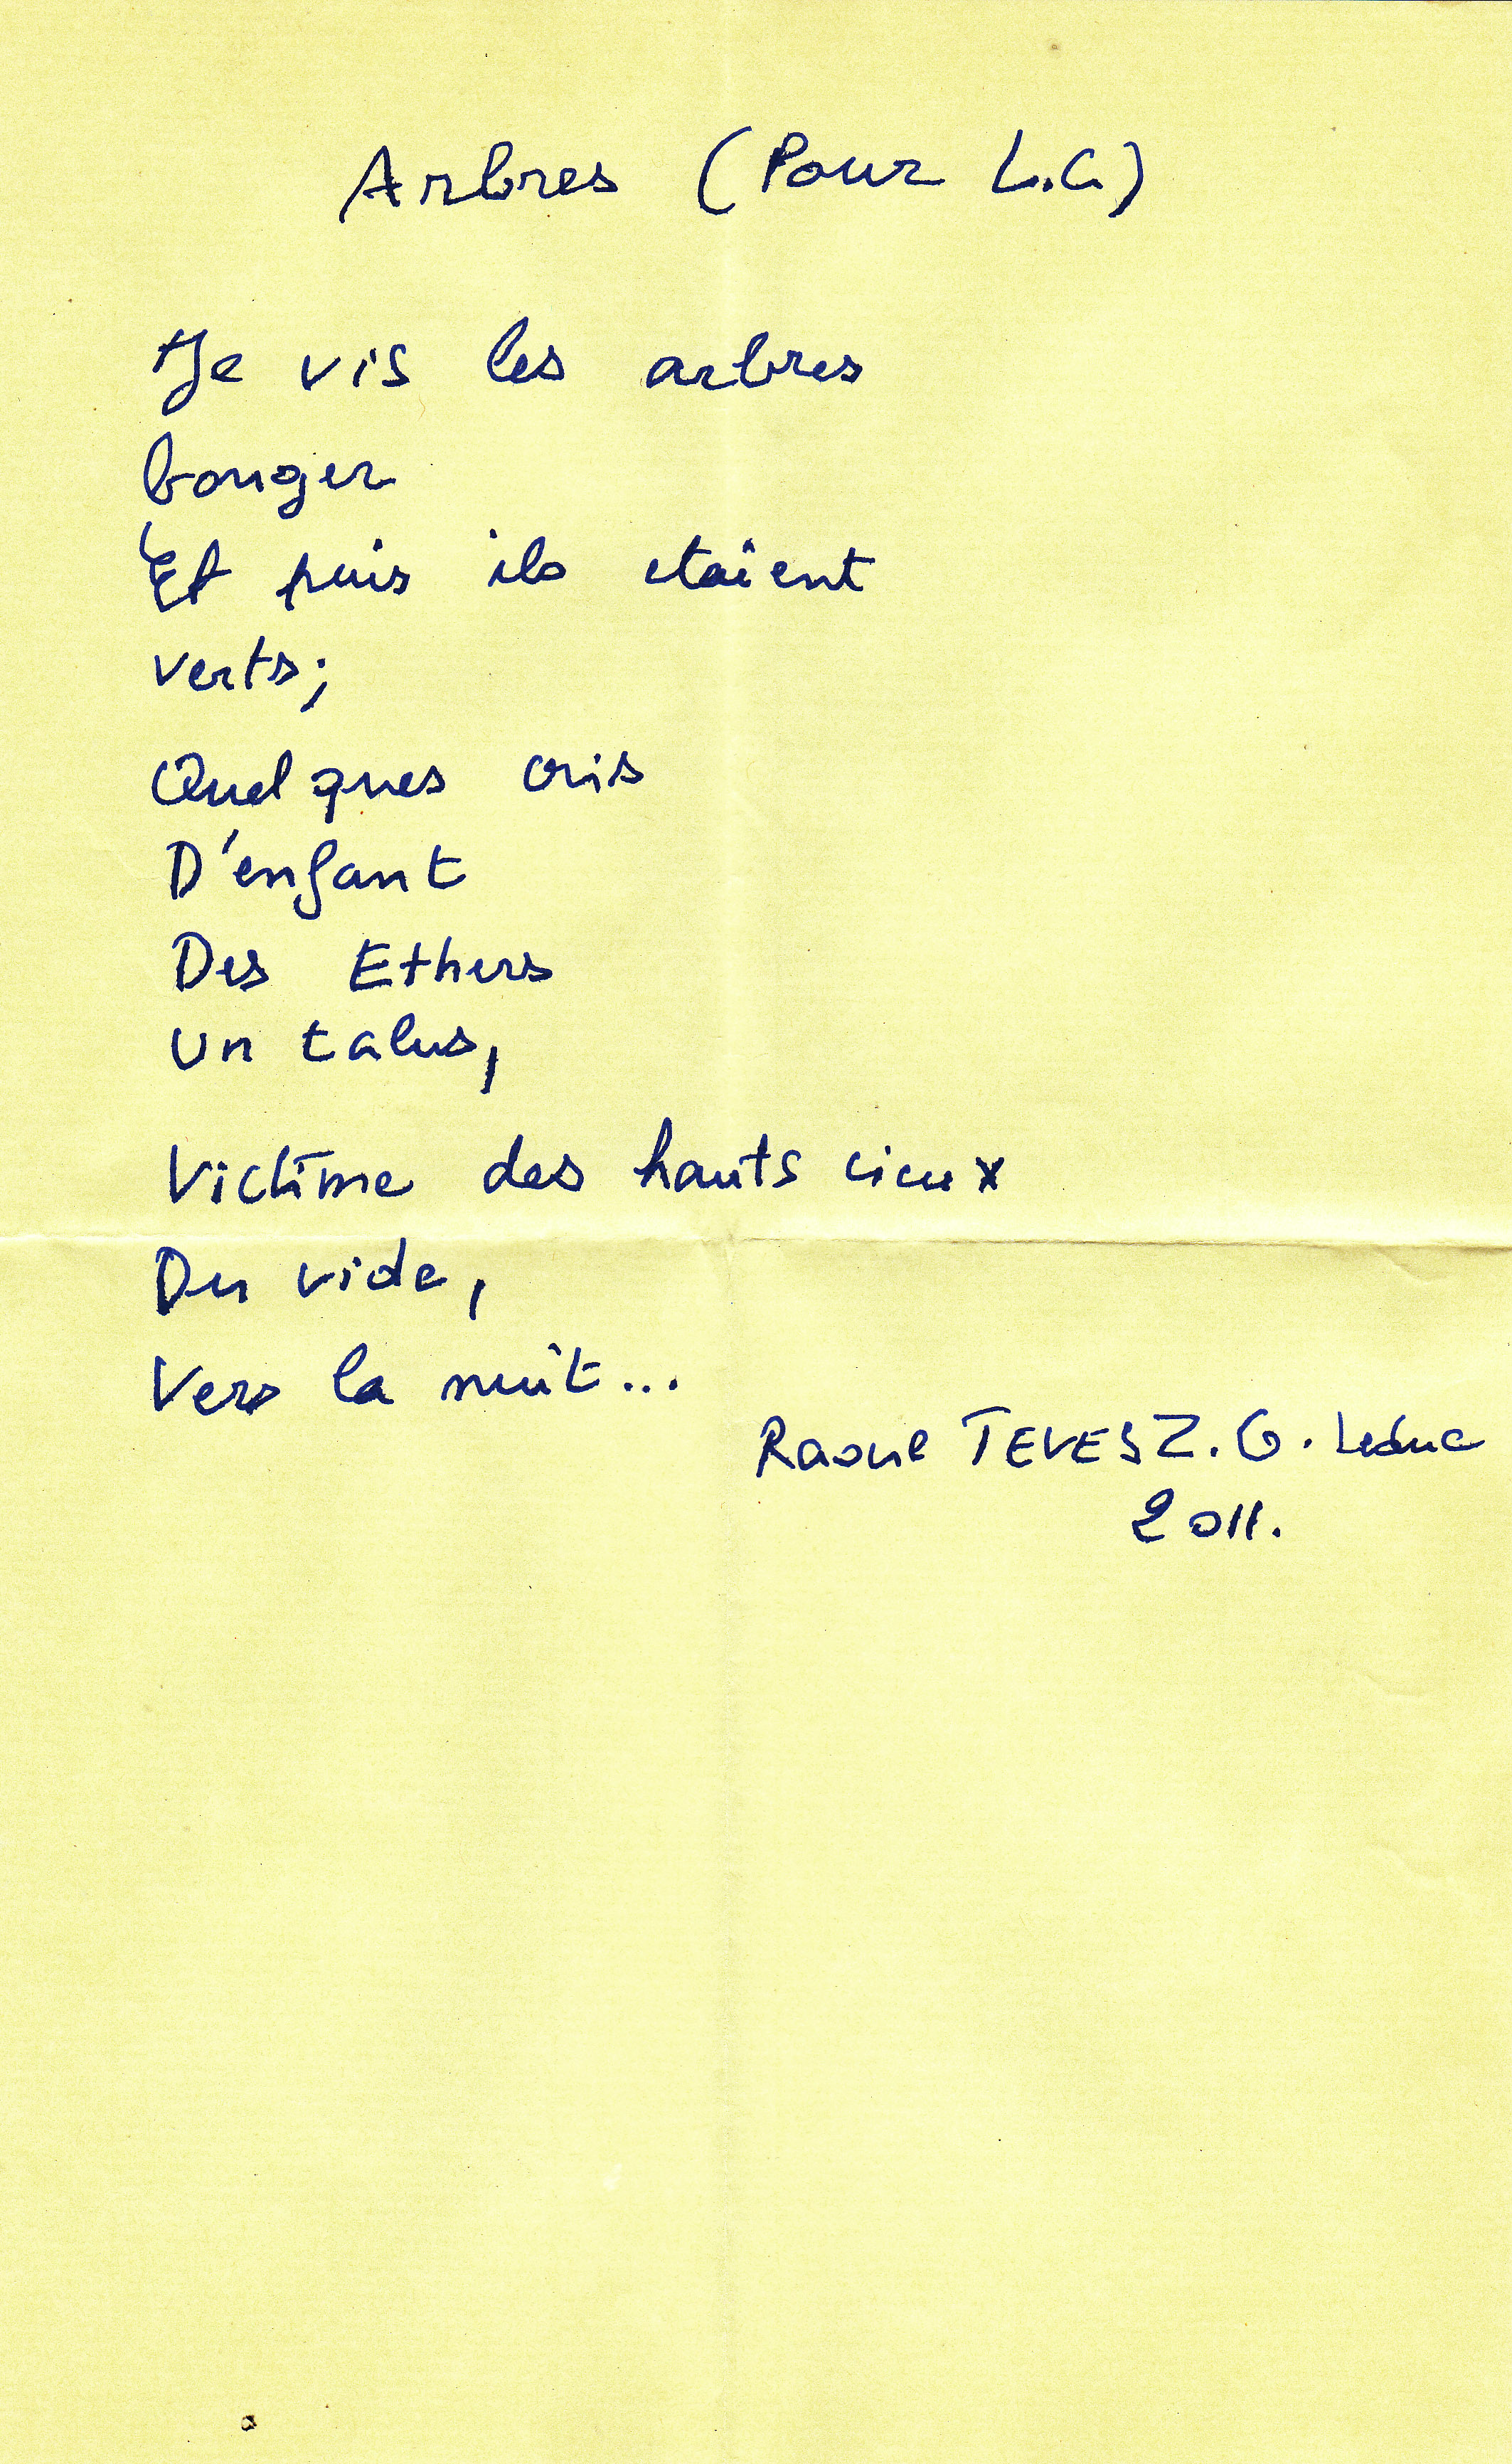 Arbres (Pour L.G)
Je vis les arbres
bouger
Et puis ils etaient
verts;
Quelques cris
D'enfant
Des Ethers
Un talus,
Victime des hauts cieux
Du vide,
Vers la nuit...
Raoul TEVES Z. G. Leduc
2011.